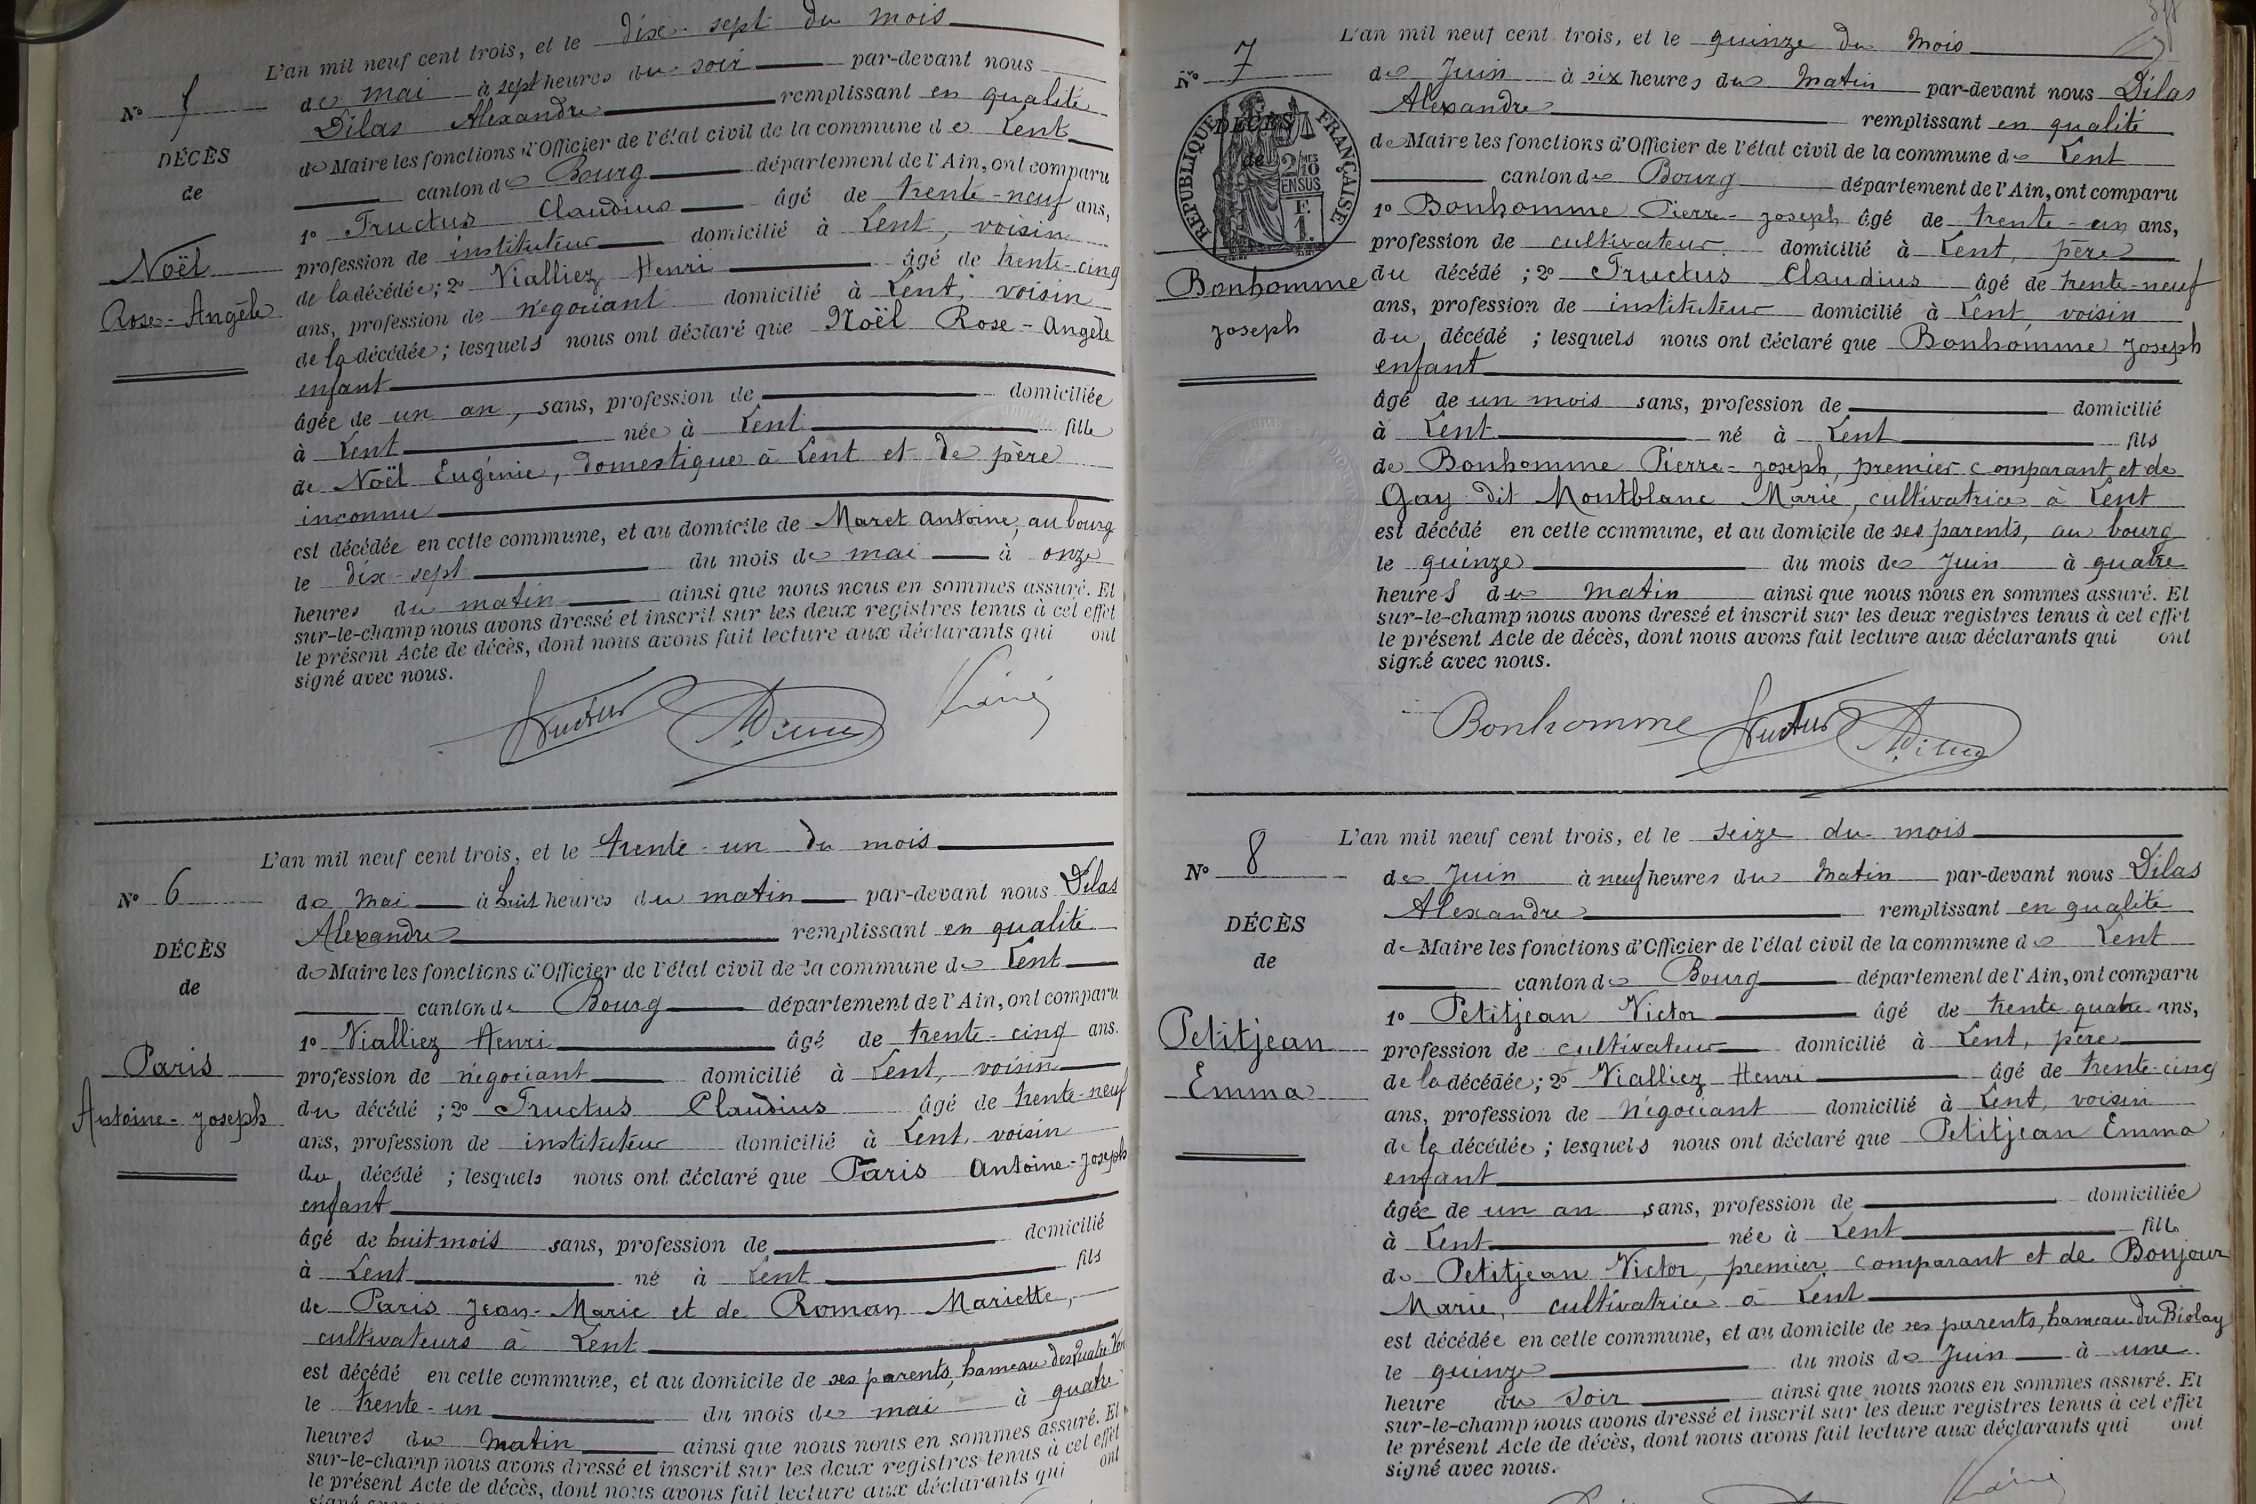 L'an mil neuf cent trois, et le dix-sept du mois
N° 5 de mai à sept heures du soir par-devant nous
Dilas Alexandre remplissant en qualité
DÉCÈS
de Maire les fonctions d'Officier de l'état civil de la commune de Lent
de
canton de Bourg département de l'Ain, ont comparu
1° Fructus Claudius âgé de trente-neuf ans,
Noël
profession de instituteur domicilié à Lent, voisin
de la décédée ; 2° Vialliez Henri âgé de trente-cinq
Rose-Angèle
ans, profession de négociant domicilié à Lent, voisin
de la décédée ; lesquels nous ont déclaré que Noël Rose-Angèle
enfant
âgée de un an, sans, profession de domiciliée
à Lent née à Lent fille
de Noël Eugénie, domestique à Lent et de père
inconnu
est décédée en cette commune, et au domicile de Maret Antoine, au bourg
le dix-sept du mois de mai à onze
heures du matin ainsi que nous nous en sommes assuré. Et
sur-le-champ nous avons dressé et inscrit sur les deux registres tenus à cet effet
le présent Acte de décès, dont nous avons fait lecture aux déclarants qui ont
signé avec nous.
Fructus Dilas
L'an mil neuf cent trois, et le trente-un du mois
N° 6 de mai à huit heures du matin par-devant nous Dilas
Alexandre remplissant en qualité
DÉCÈS
de Maire les fonctions d'Officier de l'état civil de la commune de Lent
de
canton de Bourg département de l'Ain, ont comparu
1° Vialliez Henri âgé de trente-cinq ans.
Paris
profession de négociant domicilié à Lent, voisin
Antoine-Joseph
du décédé ; 2° Fructus Claudius âgé de trente-neuf
ans, profession de instituteur domicilié à Lent, voisin
du décédé ; lesquels nous ont déclaré que Paris Antoine-Joseph
enfant
âgé de huit mois sans, profession de domicilié
à Lent né à Lent fils
de Paris Jean-Marie et de Roman Mariette,
cultivateurs à Lent
est décédé en cette commune, et au domicile de ses parents, hameau des Quatre
le trente-un du mois de mai à quatre
heures du matin ainsi que nous nous en sommes assuré. Et
sur-le-champ nous avons dressé et inscrit sur les deux registres tenus à cet effet
le présent Acte de décès, dont nous avons fait lecture aux déclarants qui ont
L'an mil neuf cent trois, et le quinze du mois
N° 7 de Juin à six heures du matin par-devant nous Dilas
Alexandre remplissant en qualité
RÉPUBLIQUE FRANÇAISE
DÉCÈS
de
2 MES
10
EN SUS
F.
1.
de Maire les fonctions d'Officier de l'état civil de la commune de Lent
canton de Bourg département de l'Ain, ont comparu
1° Bonhomme Pierre-Joseph âgé de trente-un ans,
profession de cultivateur domicilié à Lent, père
Bonhomme
du décédé ; 2° Fructus Claudius âgé de trente-neuf
Joseph
ans, profession de instituteur domicilié à Lent, voisin
du décédé ; lesquels nous ont déclaré que Bonhomme Joseph
enfant
âgé de un mois sans, profession de domicilié
à Lent né à Lent fils
de Bonhomme Pierre-Joseph, premier comparant et de
Gay dit Montblanc Marie, cultivatrice à Lent
est décédé en cette commune, et au domicile de ses parents, au bourg
le quinze du mois de Juin à quatre
heures du matin ainsi que nous nous en sommes assuré. Et
sur-le-champ nous avons dressé et inscrit sur les deux registres tenus à cet effet
le présent Acte de décès, dont nous avons fait lecture aux déclarants qui ont
signé avec nous.
Bonhomme Fructus Dilas
L'an mil neuf cent trois, et le seize du mois
N° 8 de Juin à neuf heures du matin par-devant nous Dilas
Alexandre remplissant en qualité
DÉCÈS
de Maire les fonctions d'Officier de l'état civil de la commune de Lent
de
canton de Bourg département de l'Ain, ont comparu
1° Petitjean Victor âgé de trente quatre ans,
Petitjean
profession de cultivateur domicilié à Lent, père
Emma
de la décédée ; 2° Vialliez Henri âgé de trente-cinq
ans, profession de négociant domicilié à Lent, voisin
de la décédée ; lesquels nous ont déclaré que Petitjean Emma
enfant
âgée de un an sans, profession de domiciliée
à Lent née à Lent fille
de Petitjean Victor, premier comparant et de Bonjour
Marie, cultivatrice à Lent
est décédée en cette commune, et au domicile de ses parents, hameau du Biolay
le quinze du mois de Juin à une
heure du soir ainsi que nous nous en sommes assuré. Et
sur-le-champ nous avons dressé et inscrit sur les deux registres tenus à cet effet
le présent Acte de décès, dont nous avons fait lecture aux déclarants qui ont
signé avec nous.